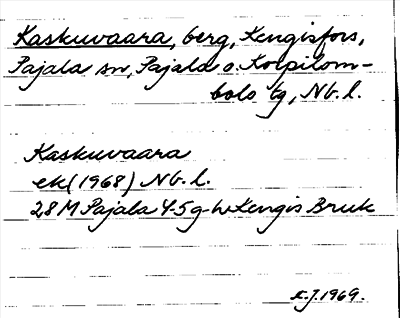 Kaskuvaara, berg, Kengisfors,
Pajala sn, Pajala o. Korpilom-
bolo tg, Nb. l.
Kaskuvaara
ek (1968) Nb. l.
28M Pajala 4-5 g-h Kengis Bruk
E.J. 1969.